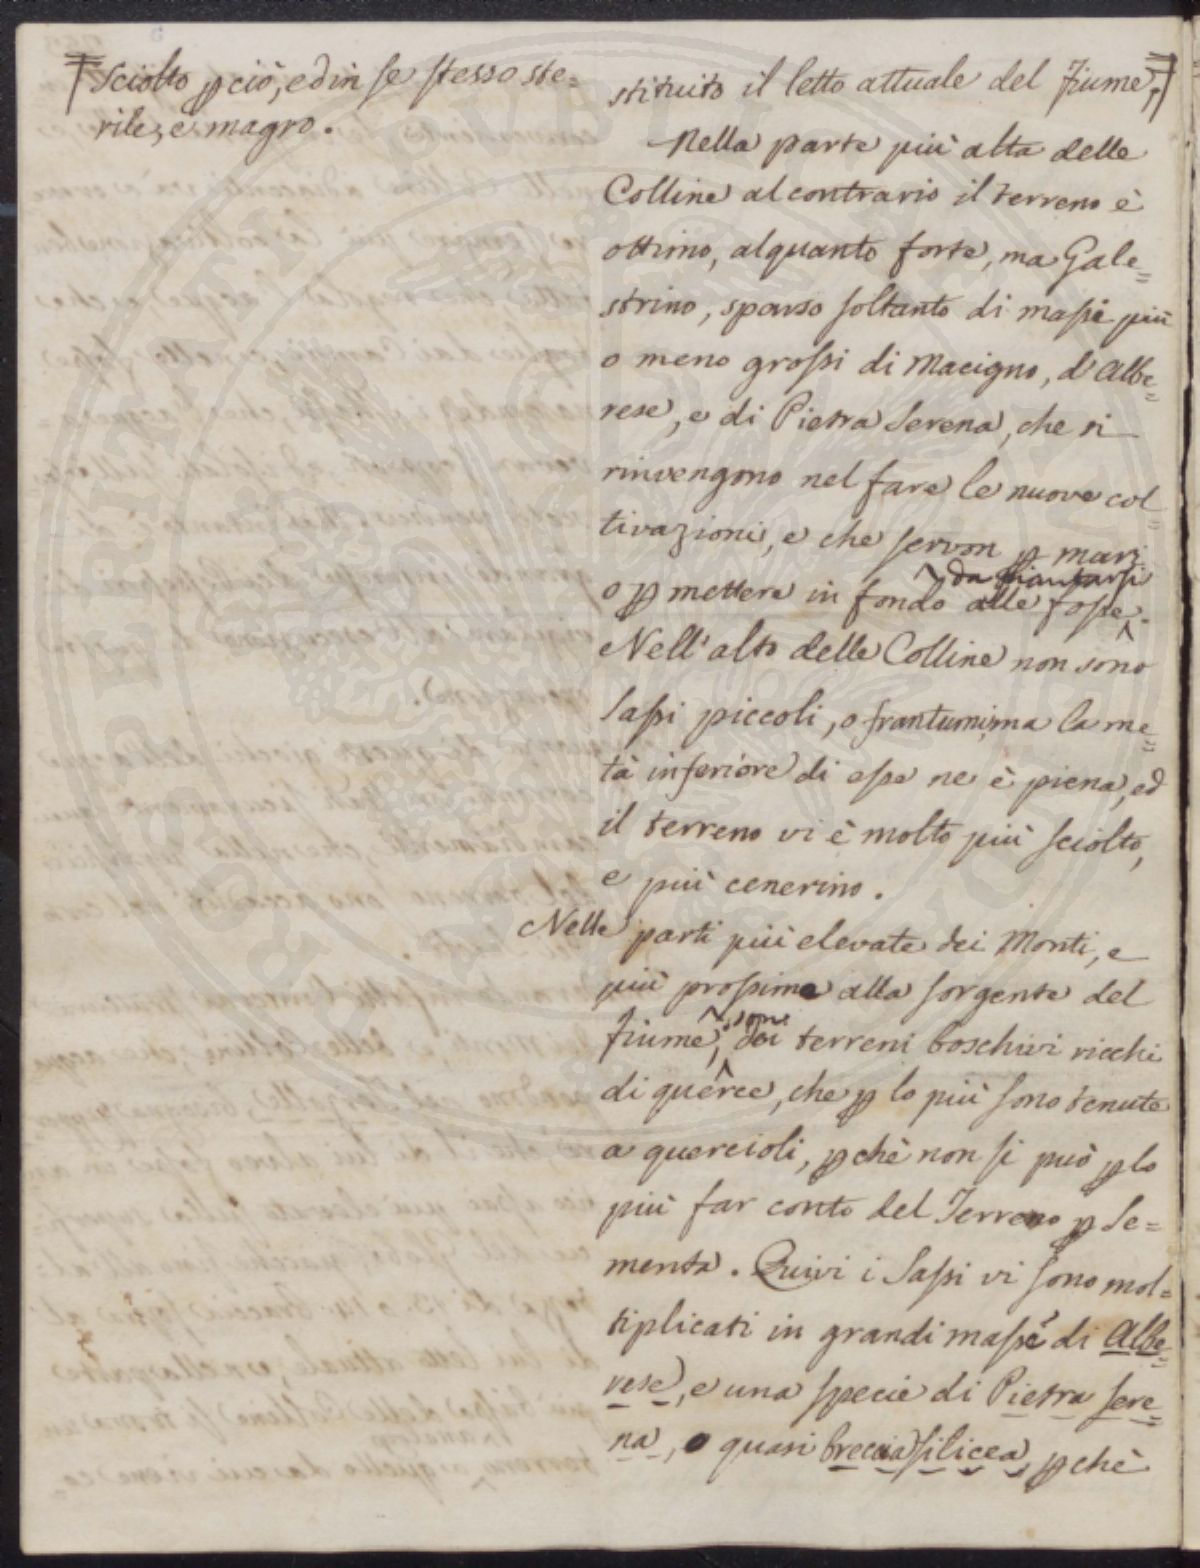 sciolto p ciò, ed in se stesso ste=
rile, e magro.
stituito il letto attuale del Fiume,
Nella parte più alta delle
Colline al contrario il terreno è
ottimo, alquanto forte, ma Gale=
strino, sparso soltanto di massi più
o meno grossi di Macigno, d'Albe=
rese, e di Pietra Serena, che si
rinvengono nel fare le nuove col
tivazioni, e che servon p muri
o p mettere in fondo alle fosse
da piantarsi
Nell'alto delle Colline non sono
Sassi piccoli, o frantumi, ma la me=
tà inferiore di esse ne è piena, ed
il terreno vi è molto più sciolto,
e più cenerino.
Nelle parti più elevate dei Monti, e
più prossime alla sorgente del
Fiume, sono dei terreni boschivi ricchi
di querce, che p lo più sono tenute
a quercioli, pchè non si può p lo
più far conto del Terreno p Se=
menta. Quivi i Sassi vi sono mol=
tiplicati in grandi masse di Albe=
rese, e una specie di Pietra sere=
na, o quasi breccia silicea, pchè